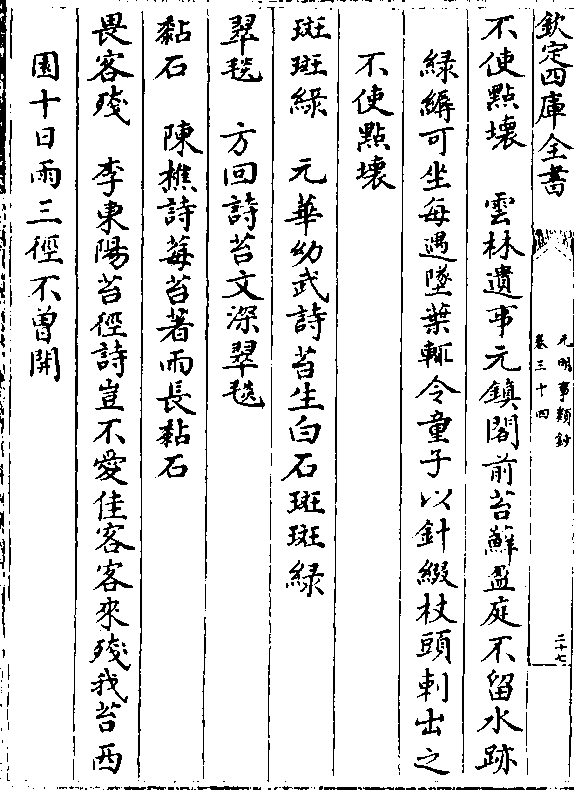 欽定四庫全書
元明事類鈔
卷三十四
二十七
不使點壞　雲林遺事元鎮閣前苔蘚盈庭不留水跡
綠縟可坐每遇墜葉輒令童子以針綴杖頭刺出之
不使點壞
斑斑綠　元華幼武詩苔生白石斑斑綠
翠毯　方回詩苔文深翠毯
黏石　陳樵詩莓苔著雨長黏石
畏客殘　李東陽苔徑詩豈不愛佳客客來殘我苔西
園十日雨三徑不曾開